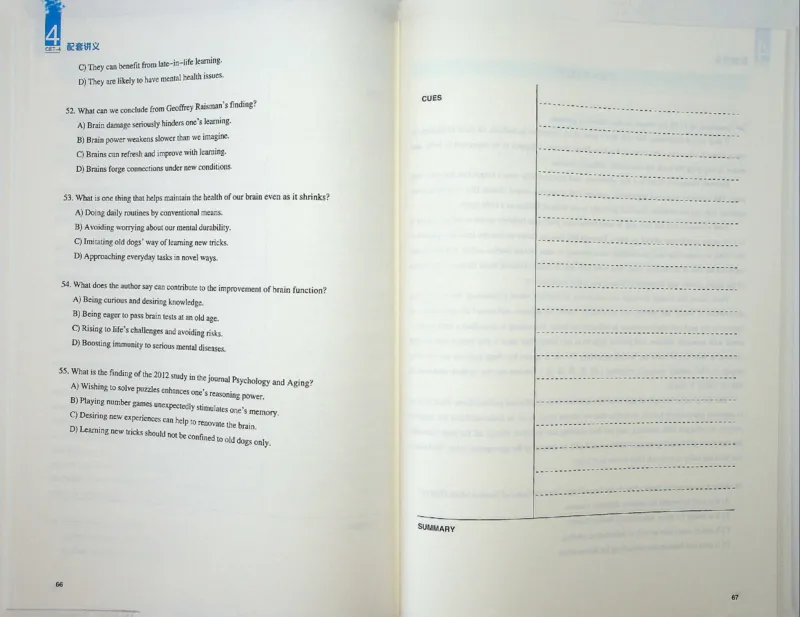 4
CET-4
配套讲义
C) They can benefit from late-in-life learning.
D) They are likely to have mental health issues.
52. What can we conclude from Geoffrey Raisman's finding?
A) Brain damage seriously hinders one's learning.
B) Brain power weakens slower than we imagine.
C) Brains can refresh and improve with learning.
D) Brains forge connections under new conditions.
53. What is one thing that helps maintain the health of our brain even as it shrinks?
A) Doing daily routines by conventional means.
B) Avoiding worrying about our mental durability.
C) Imitating old dogs' way of learning new tricks.
D) Approaching everyday tasks in novel ways.
54. What does the author say can contribute to the improvement of brain function?
A) Being curious and desiring knowledge.
B) Being eager to pass brain tests at an old age.
C) Rising to life's challenges and avoiding risks.
D) Boosting immunity to serious mental diseases.
55. What is the finding of the 2012 study in the journal Psychology and Aging?
A) Wishing to solve puzzles enhances one's reasoning power.
B) Playing number games unexpectedly stimulates one's memory.
C) Desiring new experiences can help to renovate the brain.
D) Learning new tricks should not be confined to old dogs only.
66
CUES
SUMMARY
67